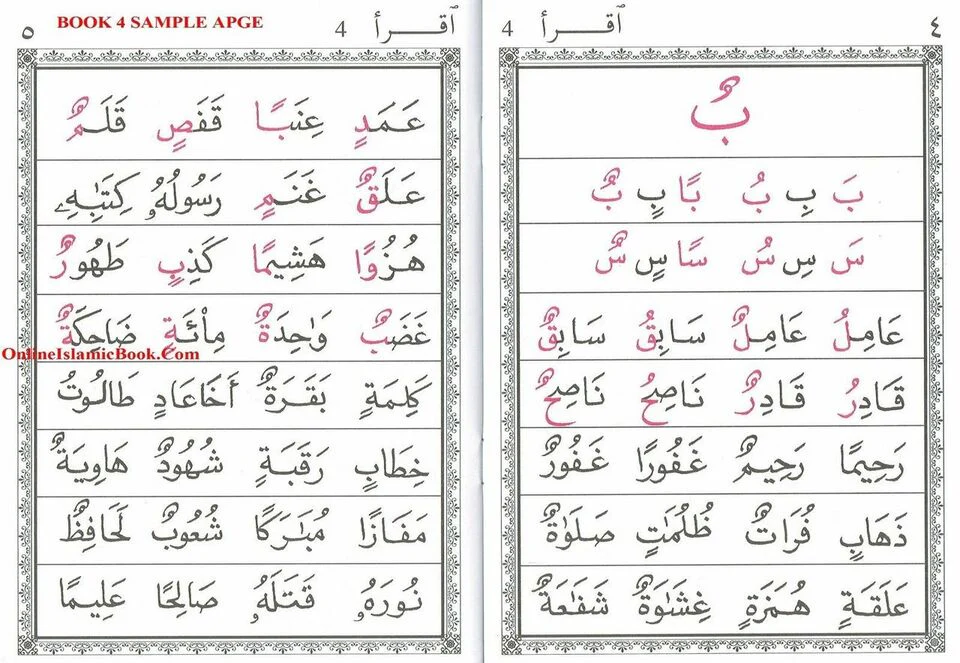 ٤ ٱقـــرأ 4
بٌ
بَ بِ بُ بًا بٍ بٌ
سَ سِ سُ سًا سٍ سٌ
عَامِلُ عَامِلٌ سَابِقُ سَابِقٌ
قَادِرُ قَادِرٌ نَاصِحُ نَاصِحٌ
رَحِيمًا رَحِيمٌ غَفُورًا غَفُورٌ
ذَهَابٍ فُرَاتٌ ظُلُمَٰتٍ صَلَوٰةٌ
عَلَقَةٍ هُمَزَةٍ غِشَٰوَةٌ شَفَٰعَةٌ
ٱقـــرأ 4 BOOK 4 SAMPLE APGE ٥
عَمَدٍ عِنَبًا قَفَصٍ قَلَمٌ
عَلَقٌ غَنَمٍ رَسُولُهُۥ كِتَٰبِهِۦ
هُزُوًا هَشِيمًا كَذِبٍ طَهُورٌ
غَضَبٌ وَٰحِدَةٌ مِا۟ئَةٍ ضَاحِكَةٌ
OnlineIslamicBook.Com
كَلِمَةٍ بَقَرَةٌ أَخَاعَادٍ طَالُوتُ
خِطَابٍ رَقَبَةٍ شُهُودٌ هَاوِيَةٌ
مَفَازًا مُبَٰرَكًا شُعُوبٌ لَحَافِظٌ
نُورَهُۥ قَتَلَهُۥ صَالِحًا عَلِيمًا